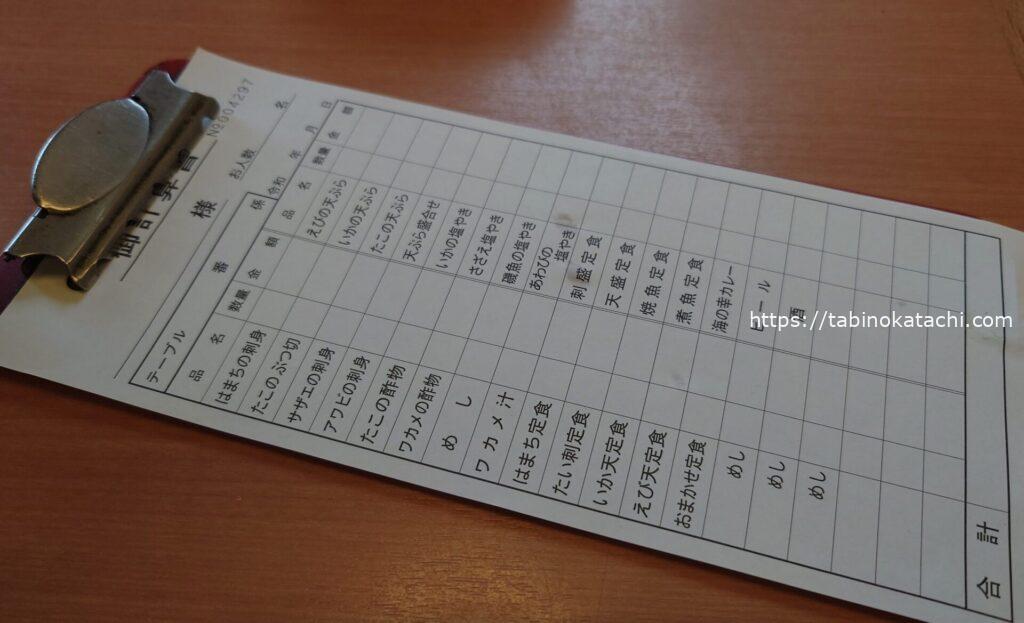 №904297
御計算書
様
お人数 名
テーブル 番 係 令和 年 月 日
品名 数量 金額 品名 数量 金額
はまちの刺身 えびの天ぷら
たこのぶつ切 いかの天ぷら
サザエの刺身 たこの天ぷら
アワビの刺身 天ぷら盛合せ
たこの酢物 いかの塩やき
ワカメの酢物 さざえ塩やき
めし 磯魚の塩やき
ワカメ汁 あわびの塩やき
はまち定食 刺盛定食
たい刺定食 天盛定食
いか天定食 焼魚定食
えび天定食 煮魚定食
おまかせ定食 海の幸カレー
めし ビール
めし 酒
めし
合計
https://tabinokatachi.com